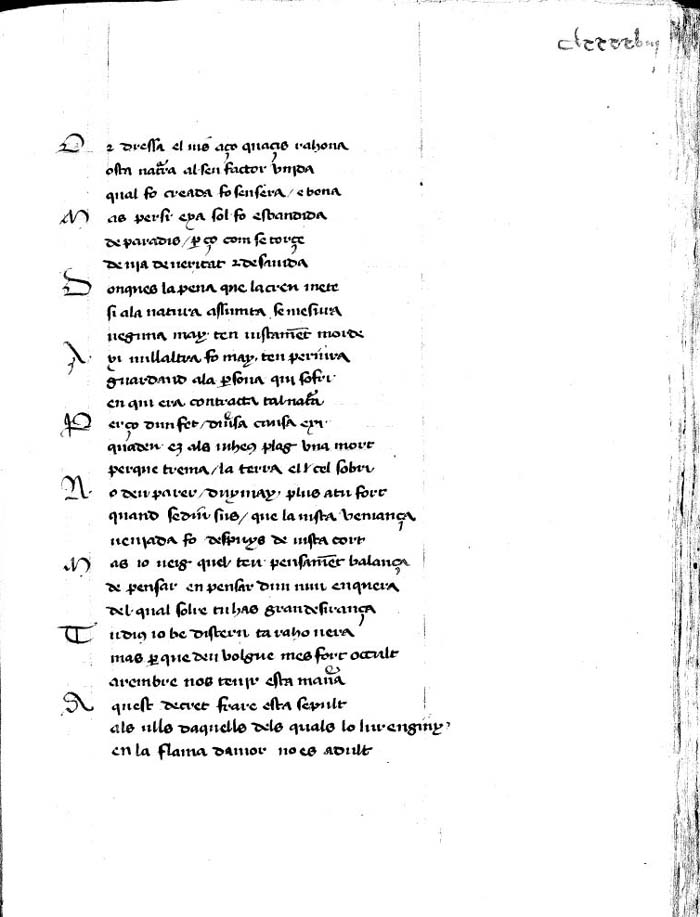 Or dressa el uis aço quacis rahona
osta nat̃ra al seu factor vnida
qual fo creada fo sensera / e bona
Mas per si exa sol fo esbandida
de paradis / p̲ ço com se torçe
de uia de ueritat z de sa uida
Donques la pena que la creu mete
si ala natura assumta se mesura
neguna may. ten iustam̃et morde
Axi nulla altra fo may. ten periura
guardand ala p̲sona qui sofri
en qui era contracta tal nat̃a
Perço dun fet / diũsa causa exi.
qua deu e als iuheus plag vna mort
per que trema / la terra el cel sobri
No deu parer / duymay. plus a tu fort
quand se diu sus / que la iusta veniança
ueniada fo despuys de iusta cort
Mas io ueig quel teu pensam̃et balança
de pensar en pensar dun nuu enquera
del qual solre tu has gran desirança
Tu dius io be discern ta raho uera
mas p̲ que deu volgue mes fort occult
a rembre nos tenir esta mañа
Aquest decret frare esta sepult
als ulls daquells dels quals lo lur enginy.
en la flama damor no es adult